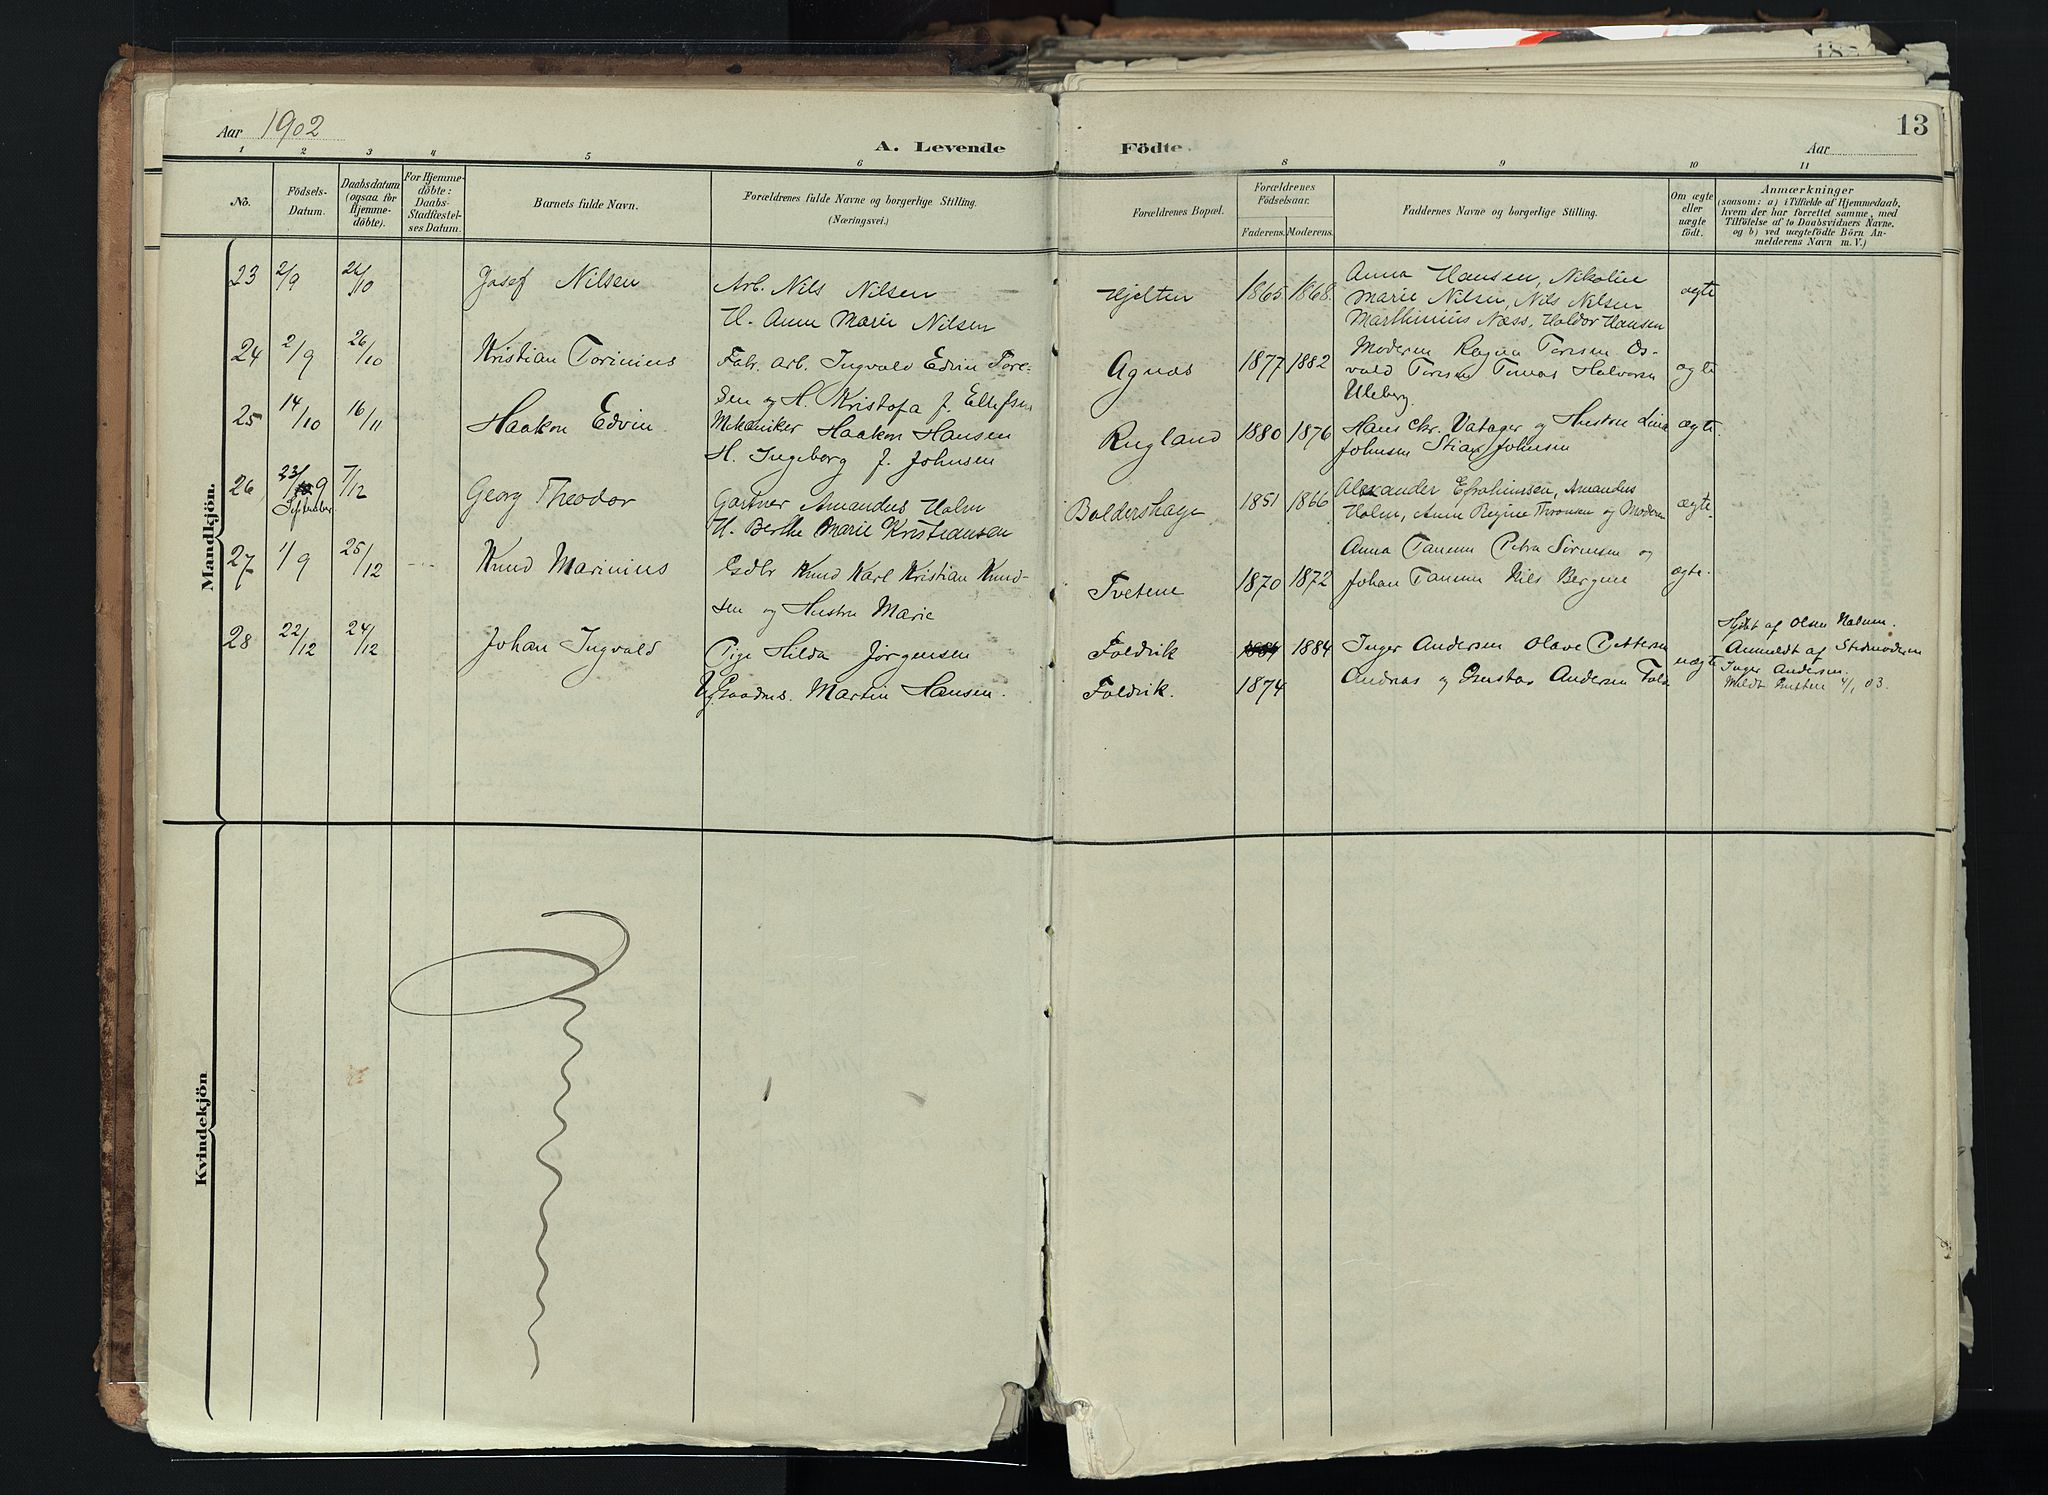 Aar 1902
A. Levende Födte.
13
Aar
1 2 3 4 5 6 8 9 10 11
No.
Födsels-
Datum.
Daabsdatum
(ogsaa for
Hjemme-
döbte).
For Hjemme-
döbte:
Daabs-
Stadfæstel-
ses Datum.
Barnets fulde Navn.
Forældrenes fulde Navne og borgerlige Stilling.
(Næringsvei.)
Forældrenes Bopæl.
Forældrenes
Födselsaar.
Faderens. Moderens.
Faddernes Navne og borgerlige Stilling.
Om ægte
eller
uægte
födt.
Anmærkninger
(saasom: a) i Tilfælde af Hjemmedaab,
hvem der har forrettet samme, med
Tilföielse af to Daabsvidners Navne.
og b) ved uægtefödte Börn An-
melderens Navn m. V.)
Mandkjön.
23 2/9 26/10 Josef Nilsen Arb. Nils Nilsen Hjelten 1865 1868. Anna Hansen, Nikoline ægte
H. Anne Marie Nilsen Marie Nilsen, Nils Nilsen
Marthinius Næss, Haldor Hansen
24 2/9 26/10 Kristian Torinius Fabr. Arb. Ingvald Edvin Tore- Agnæs 1877 1882 Moderen Regna Toresen Os- ægte
sen og H. Kristofa f. Ellefsen vald Toresen Tomas Halvorsen
Uleberg.
25 14/10 16/11 Haakon Edvin Mekaniker Haakon Hansen Rugland 1880 1876 Hans Chr. Vatager og Hustru Lina ægte.
H. Ingeborg f. Johnsen Johnsen Stian Johnsen
26 23/9 7/12 Georg Theodor Gartner Amandus Holm Boldershage 1851 1866 Alexander Efrahimsen, Amandus ægte.
September H. Berthe Marie Kristiansen Holm, Anne Regine Thronsen og Moderen
27 1/9 25/12 Knud Marinius Gdbr Knud Karl Kristian Knud- Tvetene 1870 1872 Anna Tanum Petra Sörensen og ægte.
sen og Hustru Marie Johan Tanum Nils Bergene
28 22/12 24/12 Johan Ingvald Pige Hilda Jörgensen Foldvik 1884 Inger Andersen Olave Pettersen uægte
Ug. Martin Hansen. Foldvik. 1874 Andreas og Gustav Andersen Fold
Hjdbt af Olea Halsen.
Anmeldt af Stedmoderen
Inger Andersen.
Meldt 4/1 03.
Kvindekjön